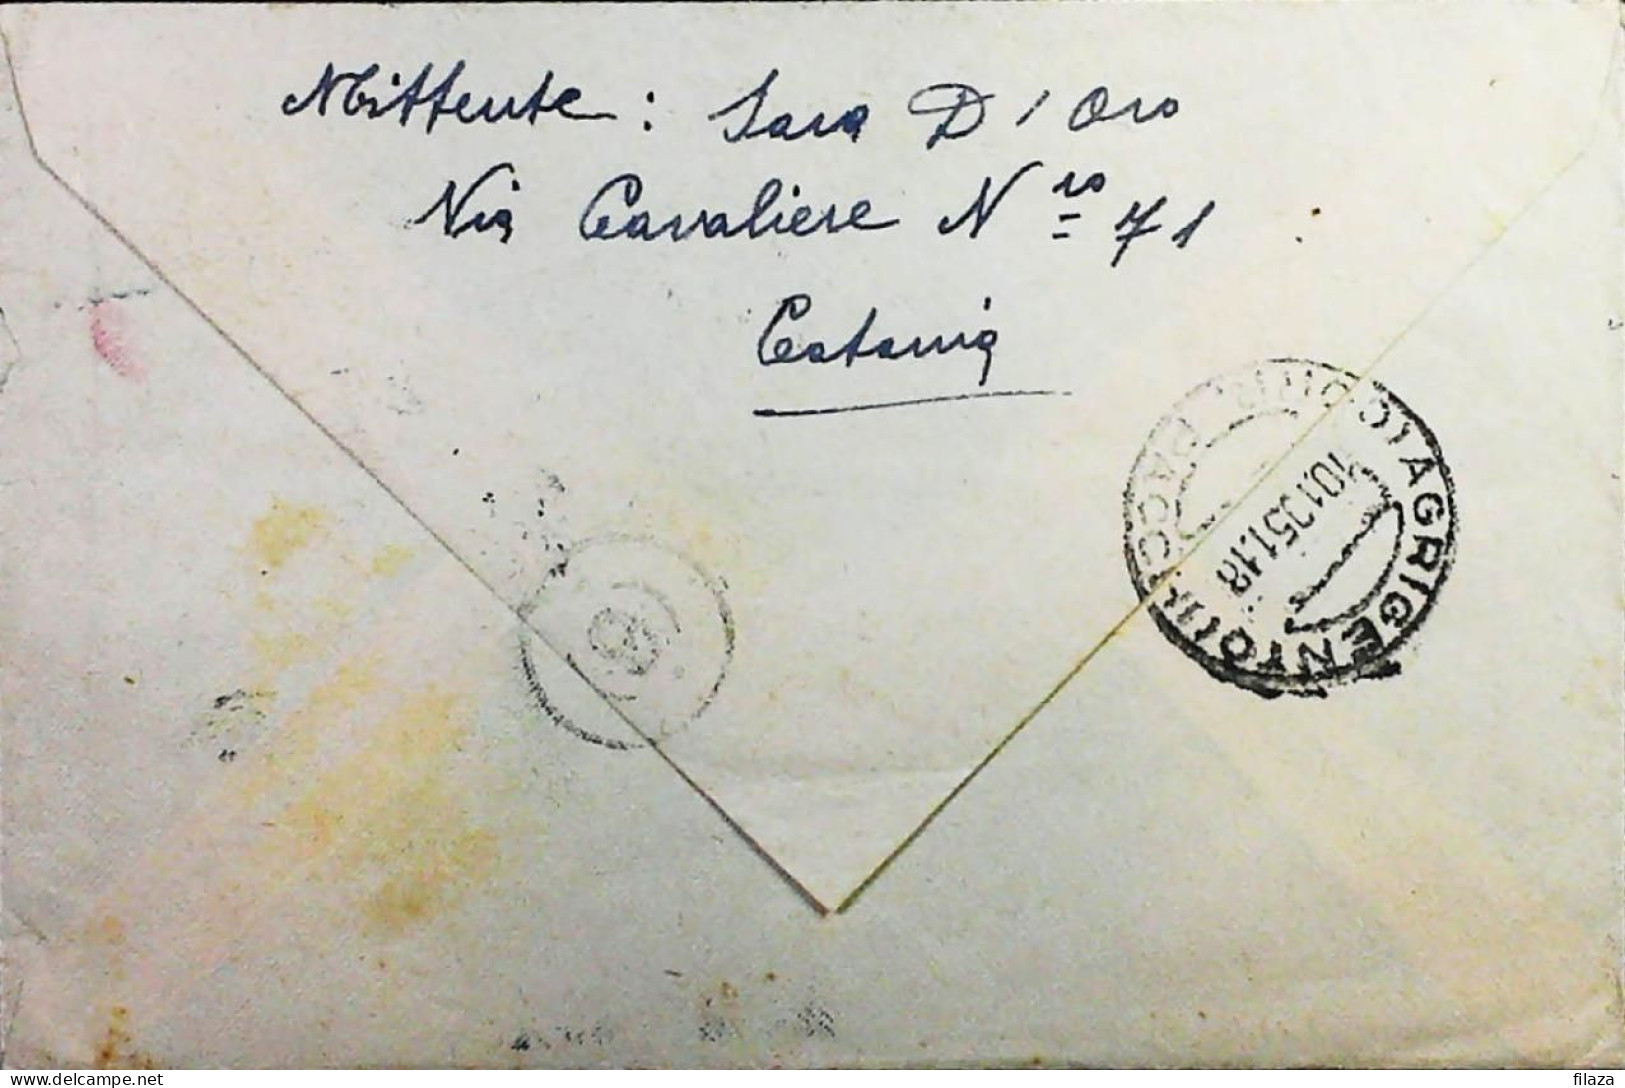 Mittente: Sara D'Oro
Via Cavaliere Nro 71
Catania
AGRIGENTO
10.10.51.18
delcampe.net
filaza